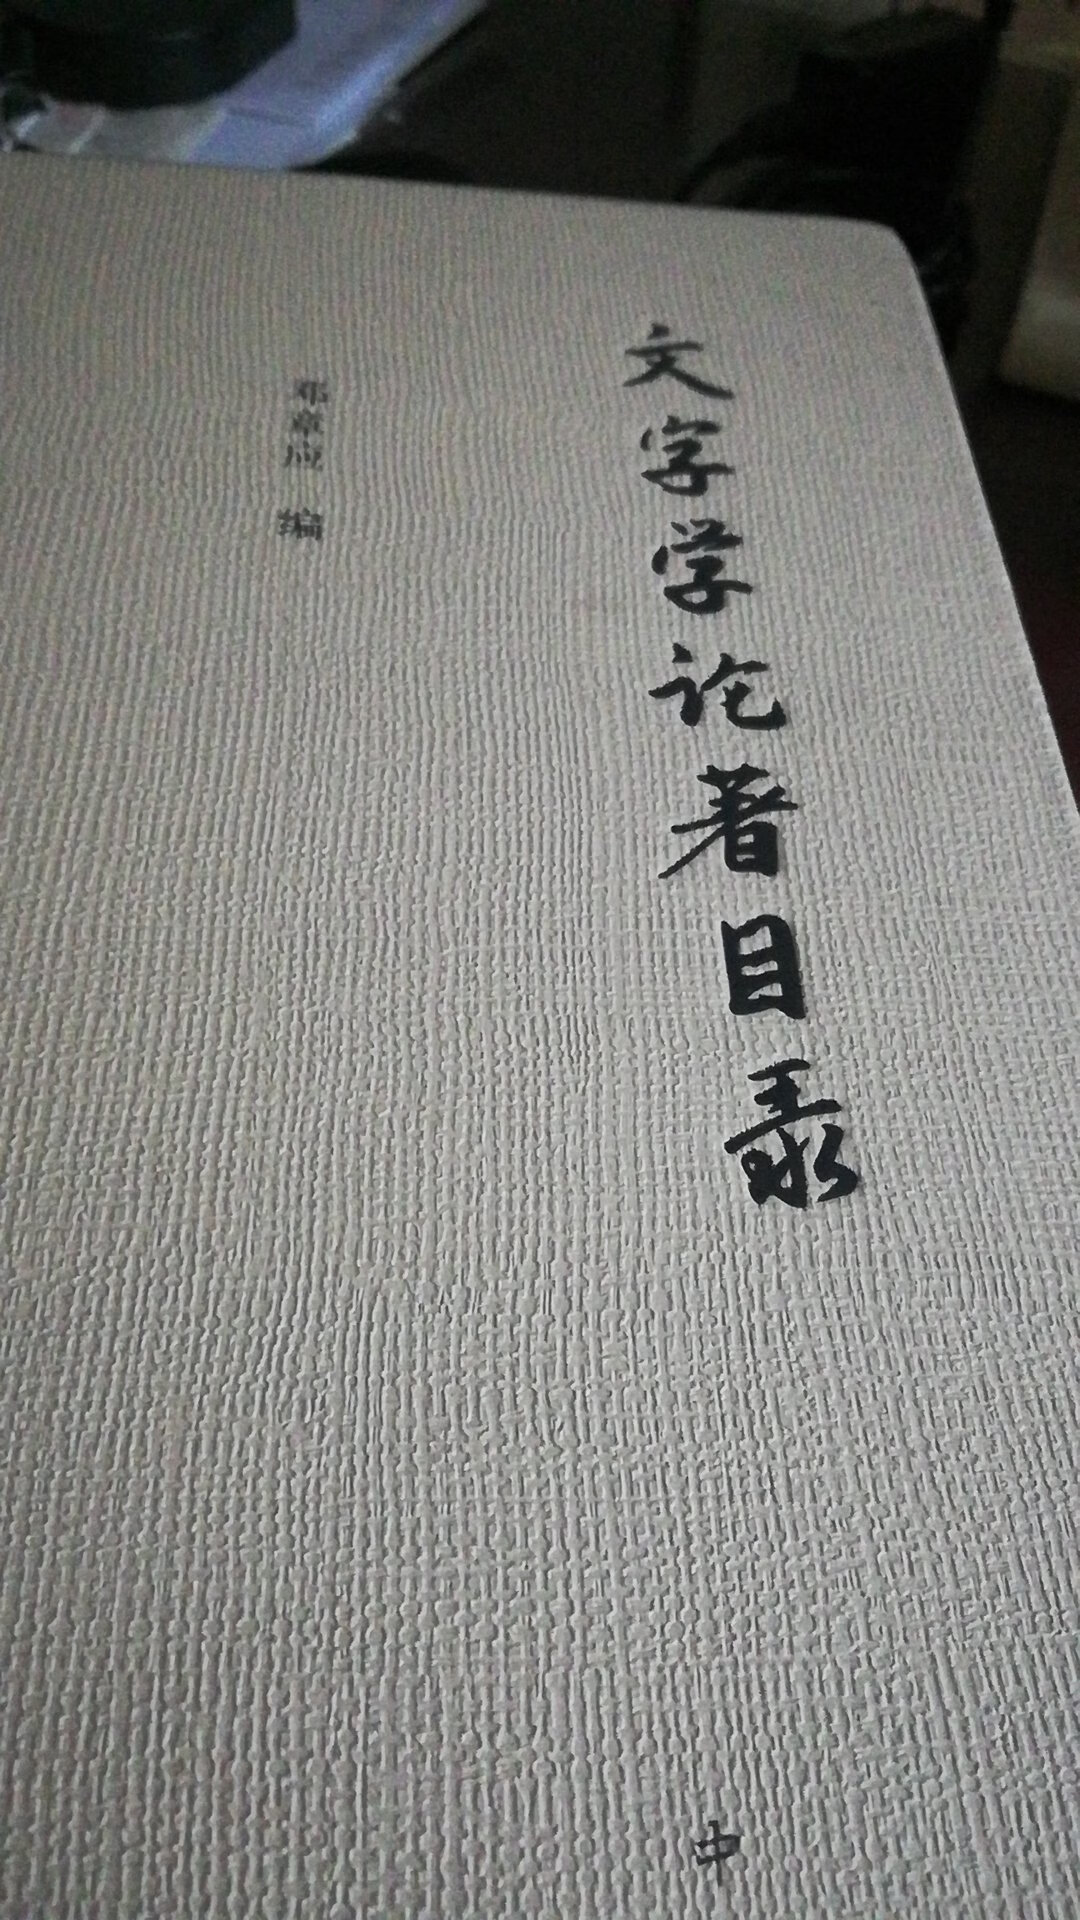 文字学论著目录
中
邓章应 编